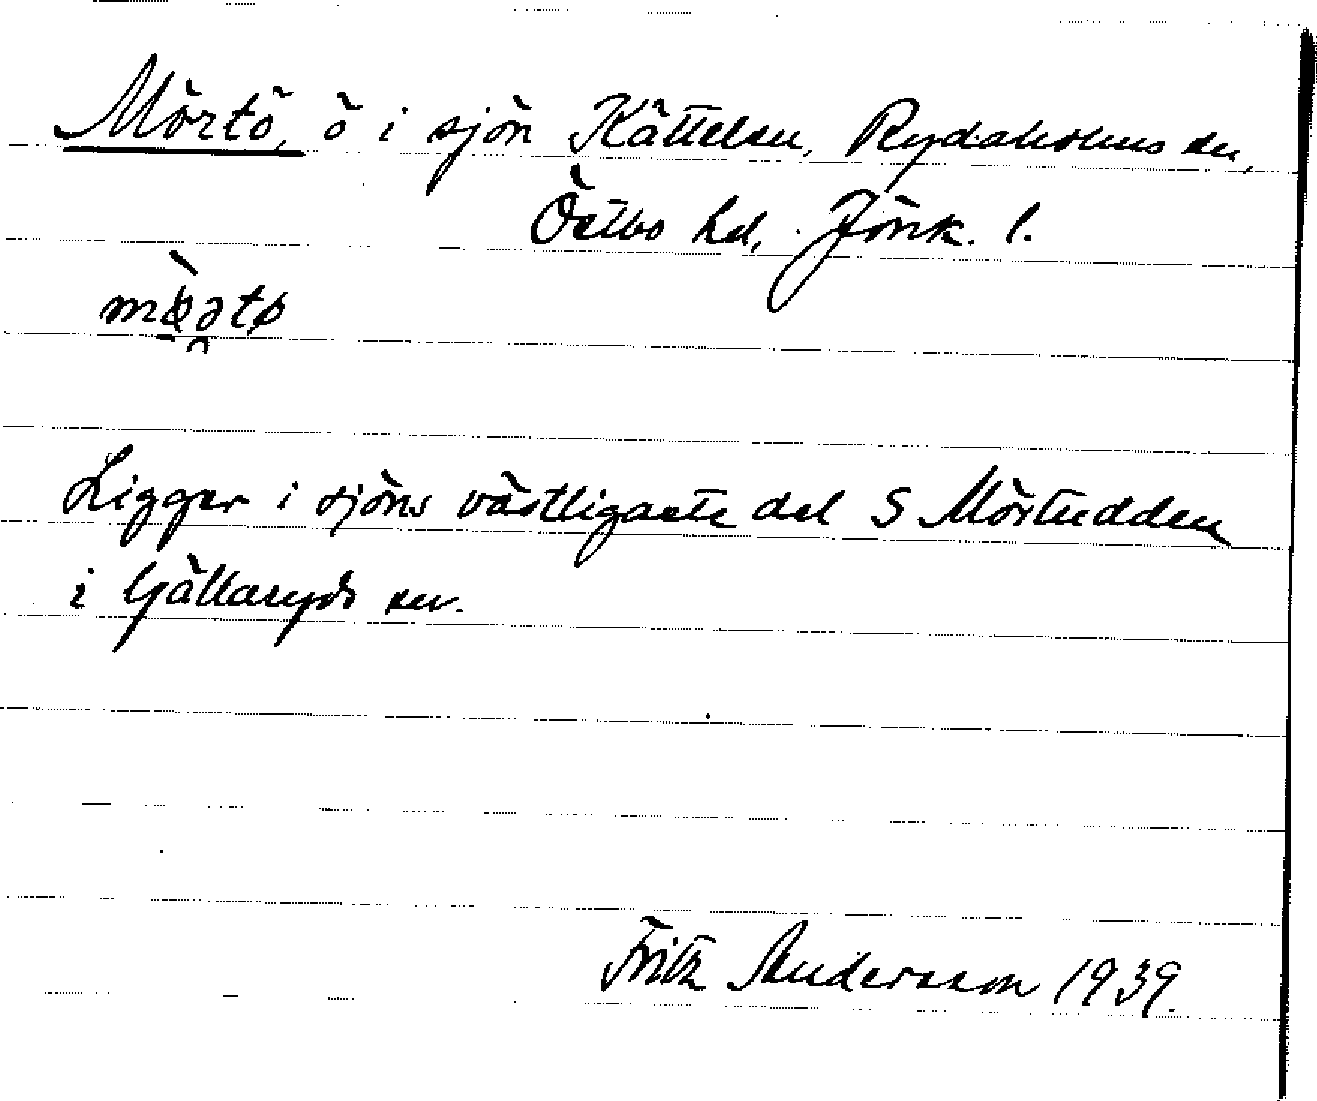 Mörtö, ö i sjön Kättelsn, Rydaholms sn,
Östbo hd, Jönk. l.
Ligger i sjöns västligaste del S Mörtudden
i Gällaryds sn.
Fritz Andersson 1939.